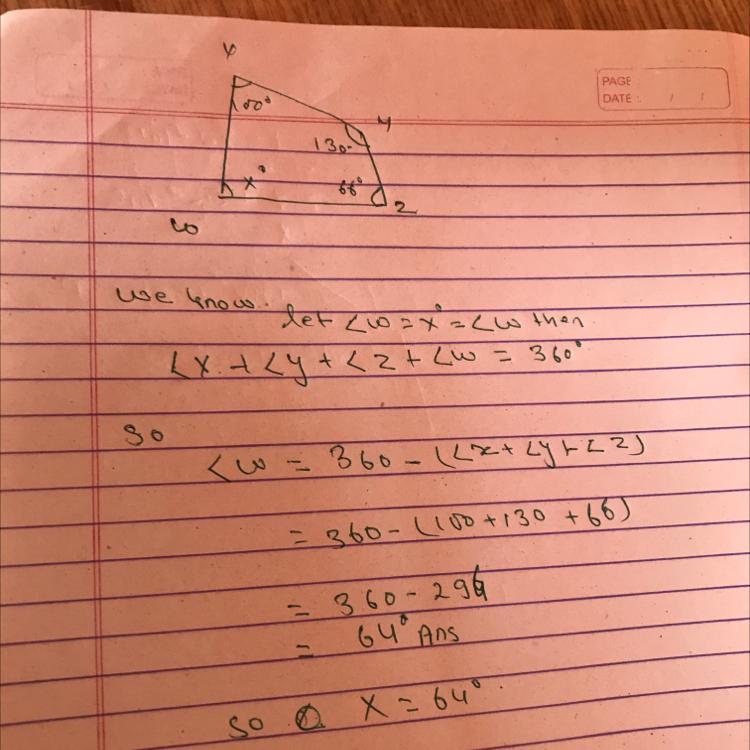 X
PAGE
DATE : / /
100°
Y
130°
x°
66°
Z
W
we know.
let ∠W = x° = ∠W then
∠X + ∠y + ∠Z + ∠W = 360°
So
∠W = 360 - (∠x + ∠y + ∠Z)
= 360 - (100 + 130 + 66)
= 360 - 296
= 64° Ans
So X = 64°